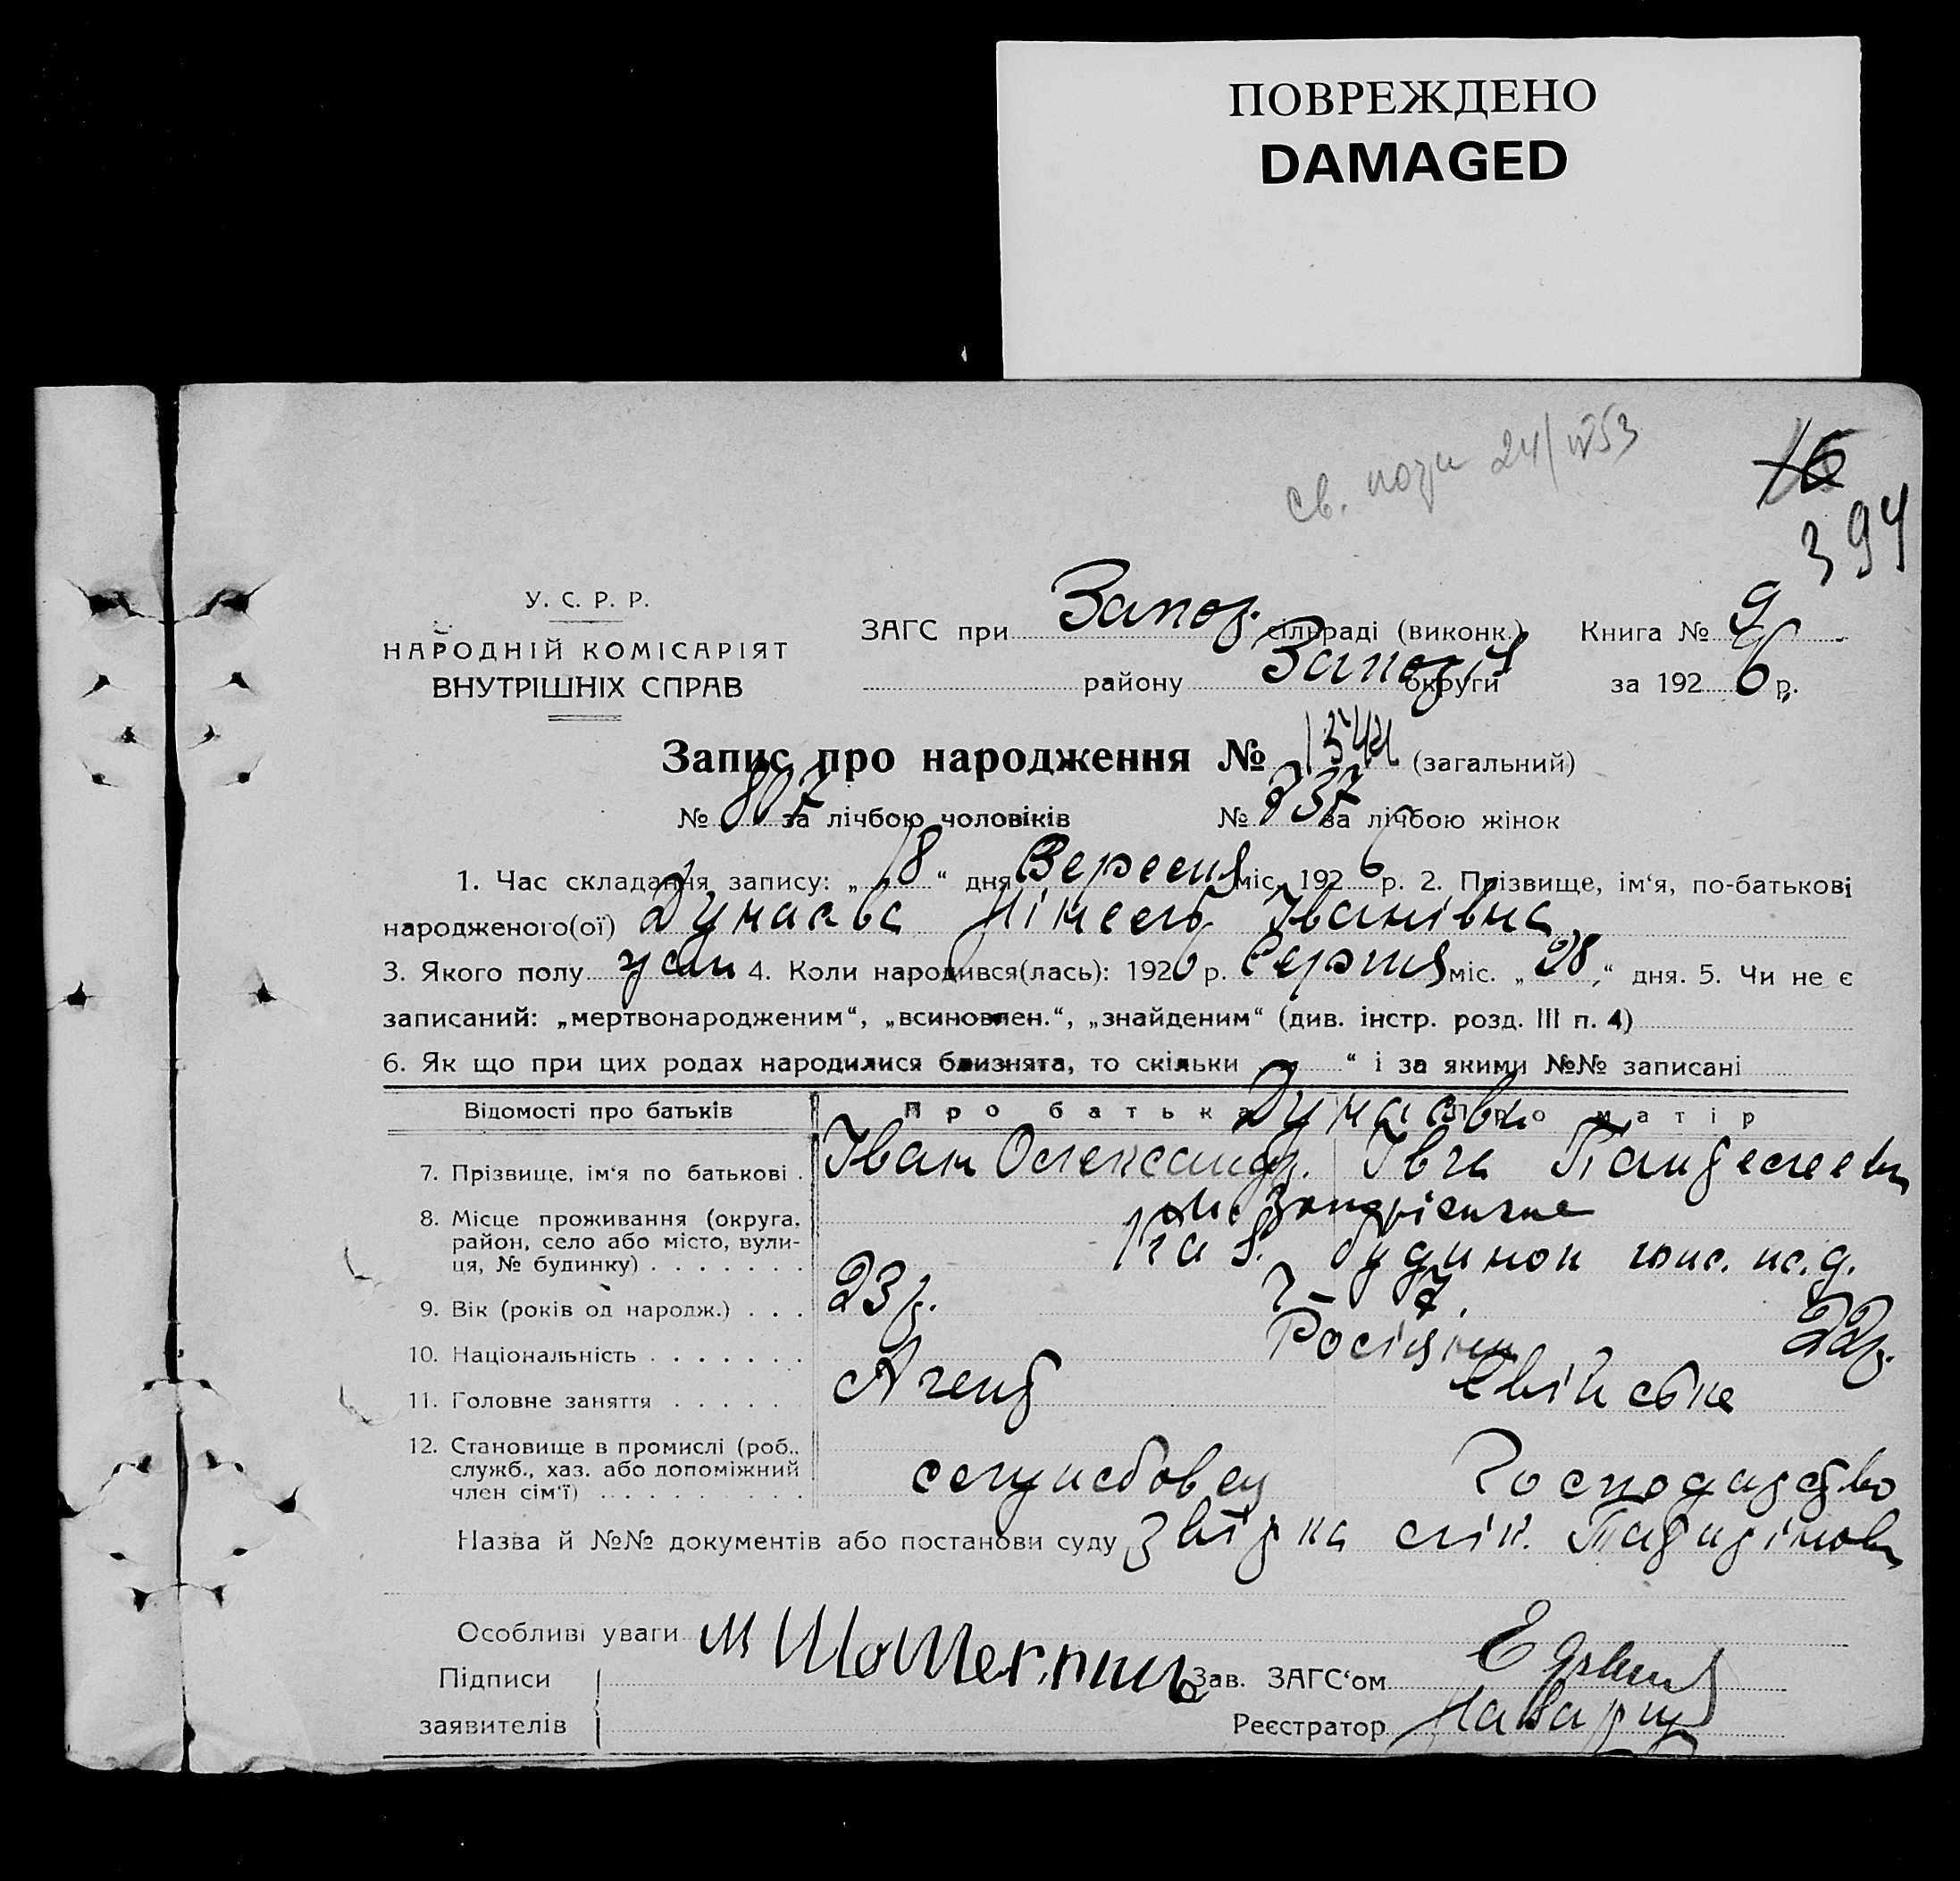 ПОВРЕЖДЕНО
DAMAGED
св. 24/IV53
16
394
У. С. Р. Р.
НАРОДНІЙ КОМІСАРІЯТ
ВНУТРІШНІХ СПРАВ
ЗАГС при Запор. сільраді (виконк.) Книга № 9
району Запоріз округи за 1926 р.
Запис про народження № 1544 (загальний)
№ 807 за лічбою чоловіків № 737 за лічбою жінок
1. Час складання запису: „18“ дня Вересня міс. 1926 р. 2. Прізвище, ім‘я, по-батькові
народженого(ої) Дунаєва Іванівна
3. Якого полу жін 4. Коли народився(лась): 1926 р. Серпня міс. „28“ дня. 5. Чи не є
записаний: „мертвонародженим“, „всиновлен.“, „знайденим“ (див. інстр. розд. III п. 4)
6. Як що при цих родах народилися близнята, то скільки “ і за якими №№ записані
Відомості про батьків Про батька Про матір
Дунаєви
7. Прізвище, ім‘я по батькові . Іван Олександр.
8. Місце проживання (округа, район, село або місто, вулиця, № будинку) . . . . . . . м. Запоріжжя
будинок
9. Вік (років од народж.) . . . 23 р. 22 р.
10. Національність . . . . . . . Росіяни
11. Головне заняття . . . . . Агент Хатнє
12. Становище в промислі (роб., служб., хаз. або допоміжний член сім‘ї) . . . . . . . . . службовец Господарство
Назва й №№ документів або постанови суду
Особливі уваги
Підписи
заявителів
Зав. ЗАГС‘ом
Реєстратор